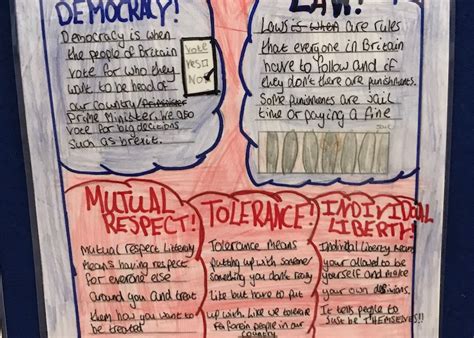 DEMOCRACY!
Democracy is when
the people of Britain
vote for who they
want to be head of
our country/
Prime Minister. We also
vote for big decisions
such as brexit.
Vote
Yes
No
LAW!
Laws is when are rules
that everyone in Britain
have to follow and if
they don't there are punishments.
Some punishments are jail
time or paying a fine
MUTUAL
RESPECT!
Mutual respect
Means having respect
for everyone else
around you and treat
them how you want to
be treated
TOLERANCE!
Tolerance Means
putting up with someone/
something you dont really
like but have to put
up with. Like we tolerate
people in our
country.
INDIVIDUAL
LIBERTY!
Individal Liberty means
your allowed to be
yourself and make
your own decisions.
It tells people to
Just be THEMSELVES!!